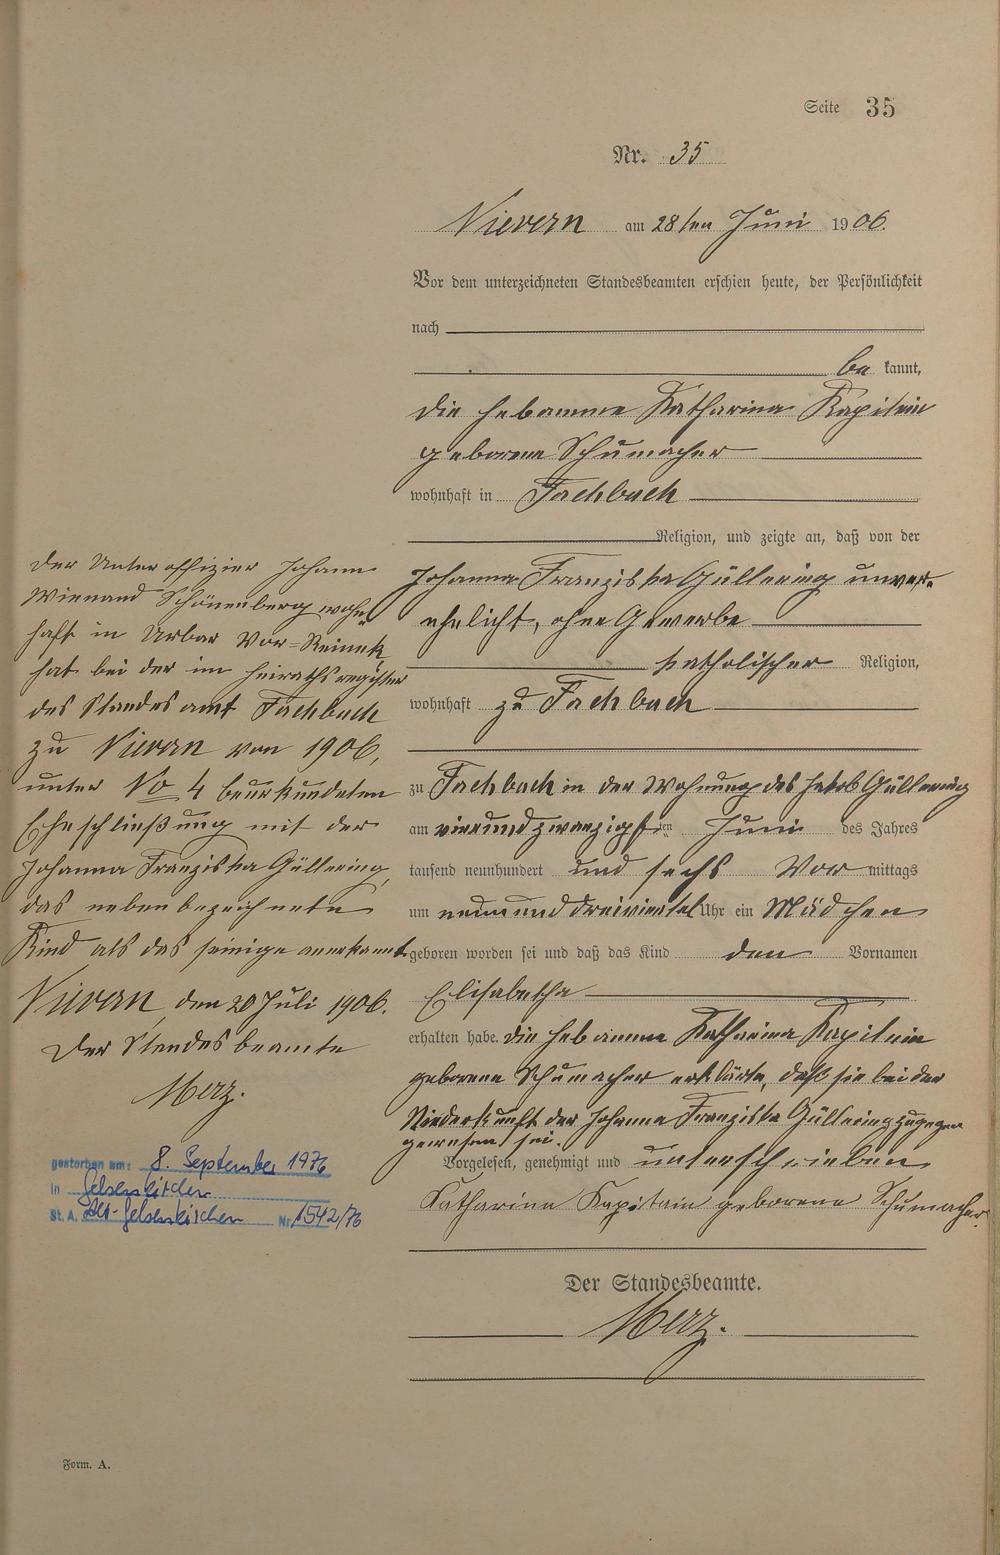 Seite 35
Nr. 35
Nievern am 28ten Juni 1906.
Vor dem unterzeichneten Standesbeamten erschien heute, der Persönlichkeit
nach
be kannt,
die Hebamme Katharina Kapitain
geborene Schumacher
wohnhaft in Fachbach
Religion, und zeigte an, daß von der
Johanna Franziska Güllering unver-
ehelicht, ohne Gewerbe
katholischer Religion,
wohnhaft zu Fachbach
zu Fachbach in der Wohnung des Jakob Güllering
am vierundzwanzigsten Juni des Jahres
tausend neunhundert und sechs Vor mittags
um neununddreiviertel Uhr ein Mädchen
geboren worden sei und daß das Kind den Vornamen
Elisabetha
erhalten habe. die Hebamme Katharina Kapitain
geborene Schumacher erklärte, daß sie bei der
Niederkunft der Johanna Franziska Güllering zugegen
gewesen sei.
Vorgelesen, genehmigt und unterschrieben
Katharina Kapitain geborene Schumacher.
Der Standesbeamte.
Merz.
Der Unteroffizier Johann
Wienand Schönenberg wohn
haft in Urbar
hat bei der im Heirathsregister
des Standesamt Fachbach
zu Nievern von 1906,
unter No 4 beurkundeten
Eheschließung mit der
Johanna Franziska Güllering,
das nebenbezeichnete
Kind als das seinige anerkannt.
Nievern, den 20 Juli 1906.
Der Standesbeamte
Merz.
gestorben am: 8. September 1976
in Gelsenkirchen
St. A. Alt-Gelsenkirchen Nr. 1542/76
Form. A.